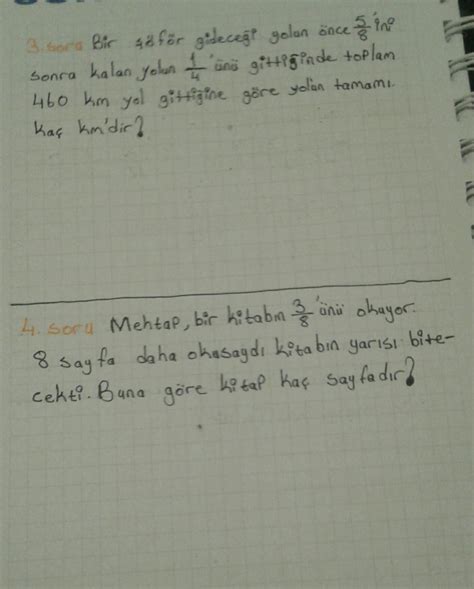 3. soru Bir şöför gideceği yolun önce 5/8 'ini
sonra kalan yolun 1/4 'ünü gittiğinde toplam
460 km yol gittiğine göre yolun tamamı
kaç km'dir?
4. soru Mehtap, bir kitabın 3/8 'ünü okuyor.
8 sayfa daha okusaydı kitabın yarısı bite-
cekti. Buna göre kitap kaç sayfadır?